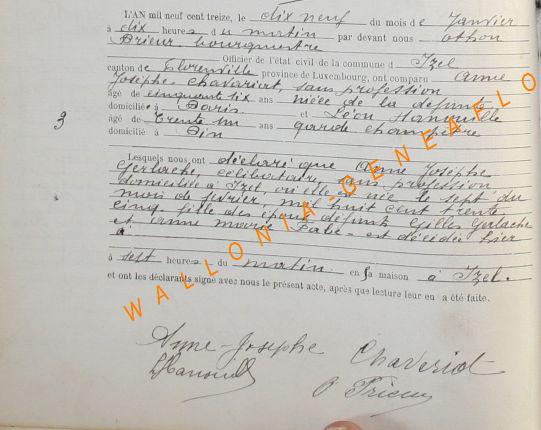 L'AN mil neuf cent treize, le dix neuf du mois de Janvier
à dix heures du matin par devant nous Othon
Prieur, bourgmestre
Officier de l'état civil de la commune d Izel
canton de Florenville province de Luxembourg, ont comparu Anne
Josèphe Chavariat, sans profession
âgé de cinquante six ans nièce de la défunte
domiciliée à Paris et Léon
3
âgé de trente un ans garde champêtre
domicilié à Pin
Lesquels nous ont déclaré que Anne Josèphe
Gerlache, célibataire, sans profession
domiciliée à Izel, où elle est née le sept du
mois de février, mil huit cent trente
cinq fille des époux défunts Gilles Gerlache
et Anne Marie est décédée hier
à
à sept heures du matin en sa maison à Izel.
et ont les déclarants signé avec nous le présent acte, après que lecture leur en a été faite.
Anne-Josephe Chaveriat
O Prieur
WALLONIA-GENEAFLO